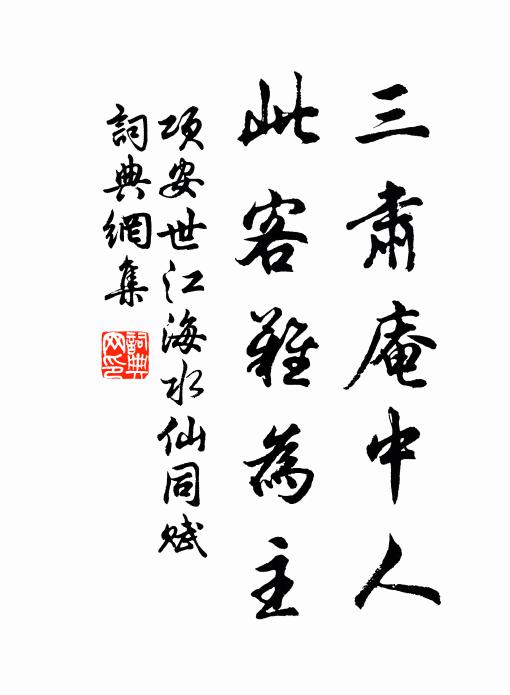 三肅庵中人
此客難為主
項安世江海水仙同賦
詞典網集
詞典網印